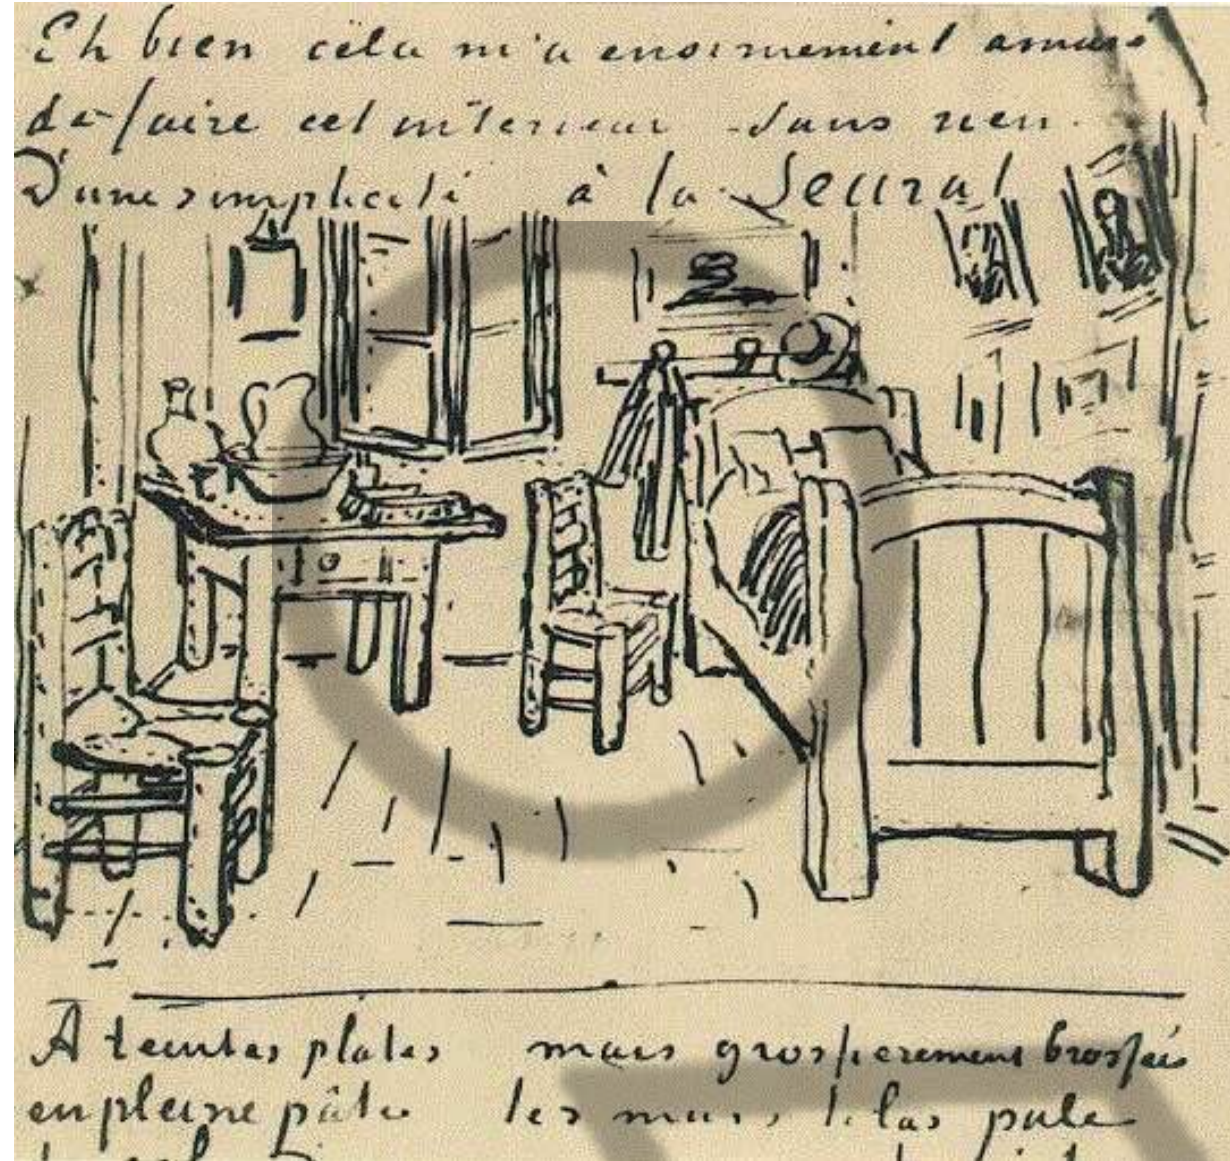 Eh bien cela m'a enormement amusé
de faire cet interieur sans rien.
D'une simplicité à la Seurat
A teintes plates mais grossierement brossées
en pleine pâte les murs lilas pale